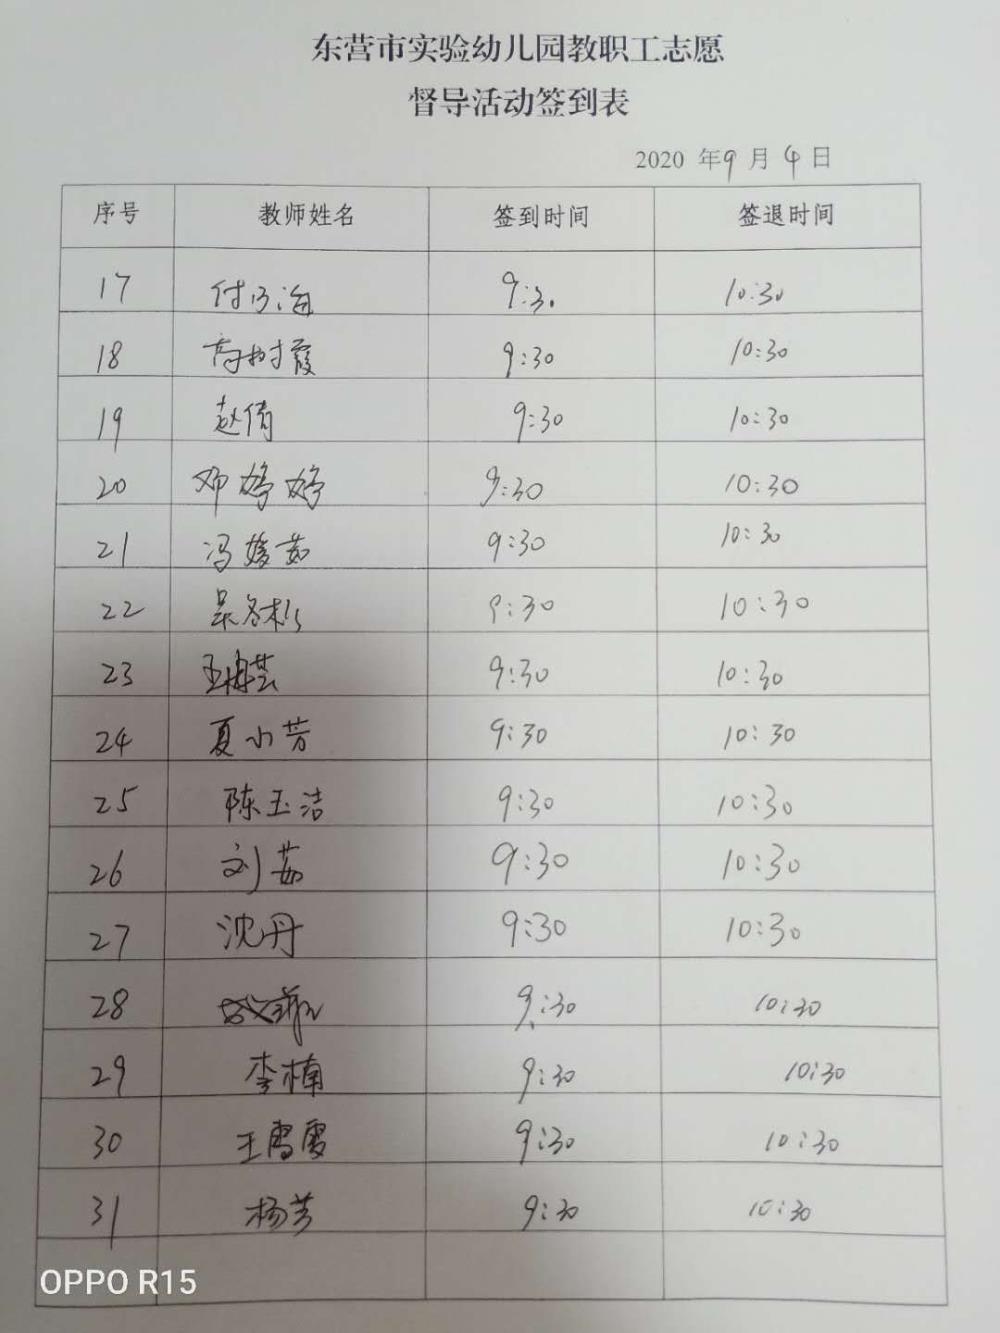 东营市实验幼儿园教职工志愿
督导活动签到表
2020 年9月4日
序号 教师姓名 签到时间 签退时间
17 付 海 9:30 10:30
18 高树霞 9:30 10:30
19 赵倩 9:30 10:30
20 邓婷婷 9:30 10:30
21 冯媛茹 9:30 10:30
22 吴冬松 9:30 10:30
23 王 芸 9:30 10:30
24 夏小芳 9:30 10:30
25 陈玉洁 9:30 10:30
26 刘茹 9:30 10:30
27 沈丹 9:30 10:30
28 9:30 10:30
29 李楠 9:30 10:30
30 王雪雯 9:30 10:30
31 杨芳 9:30 10:30
OPPO R15